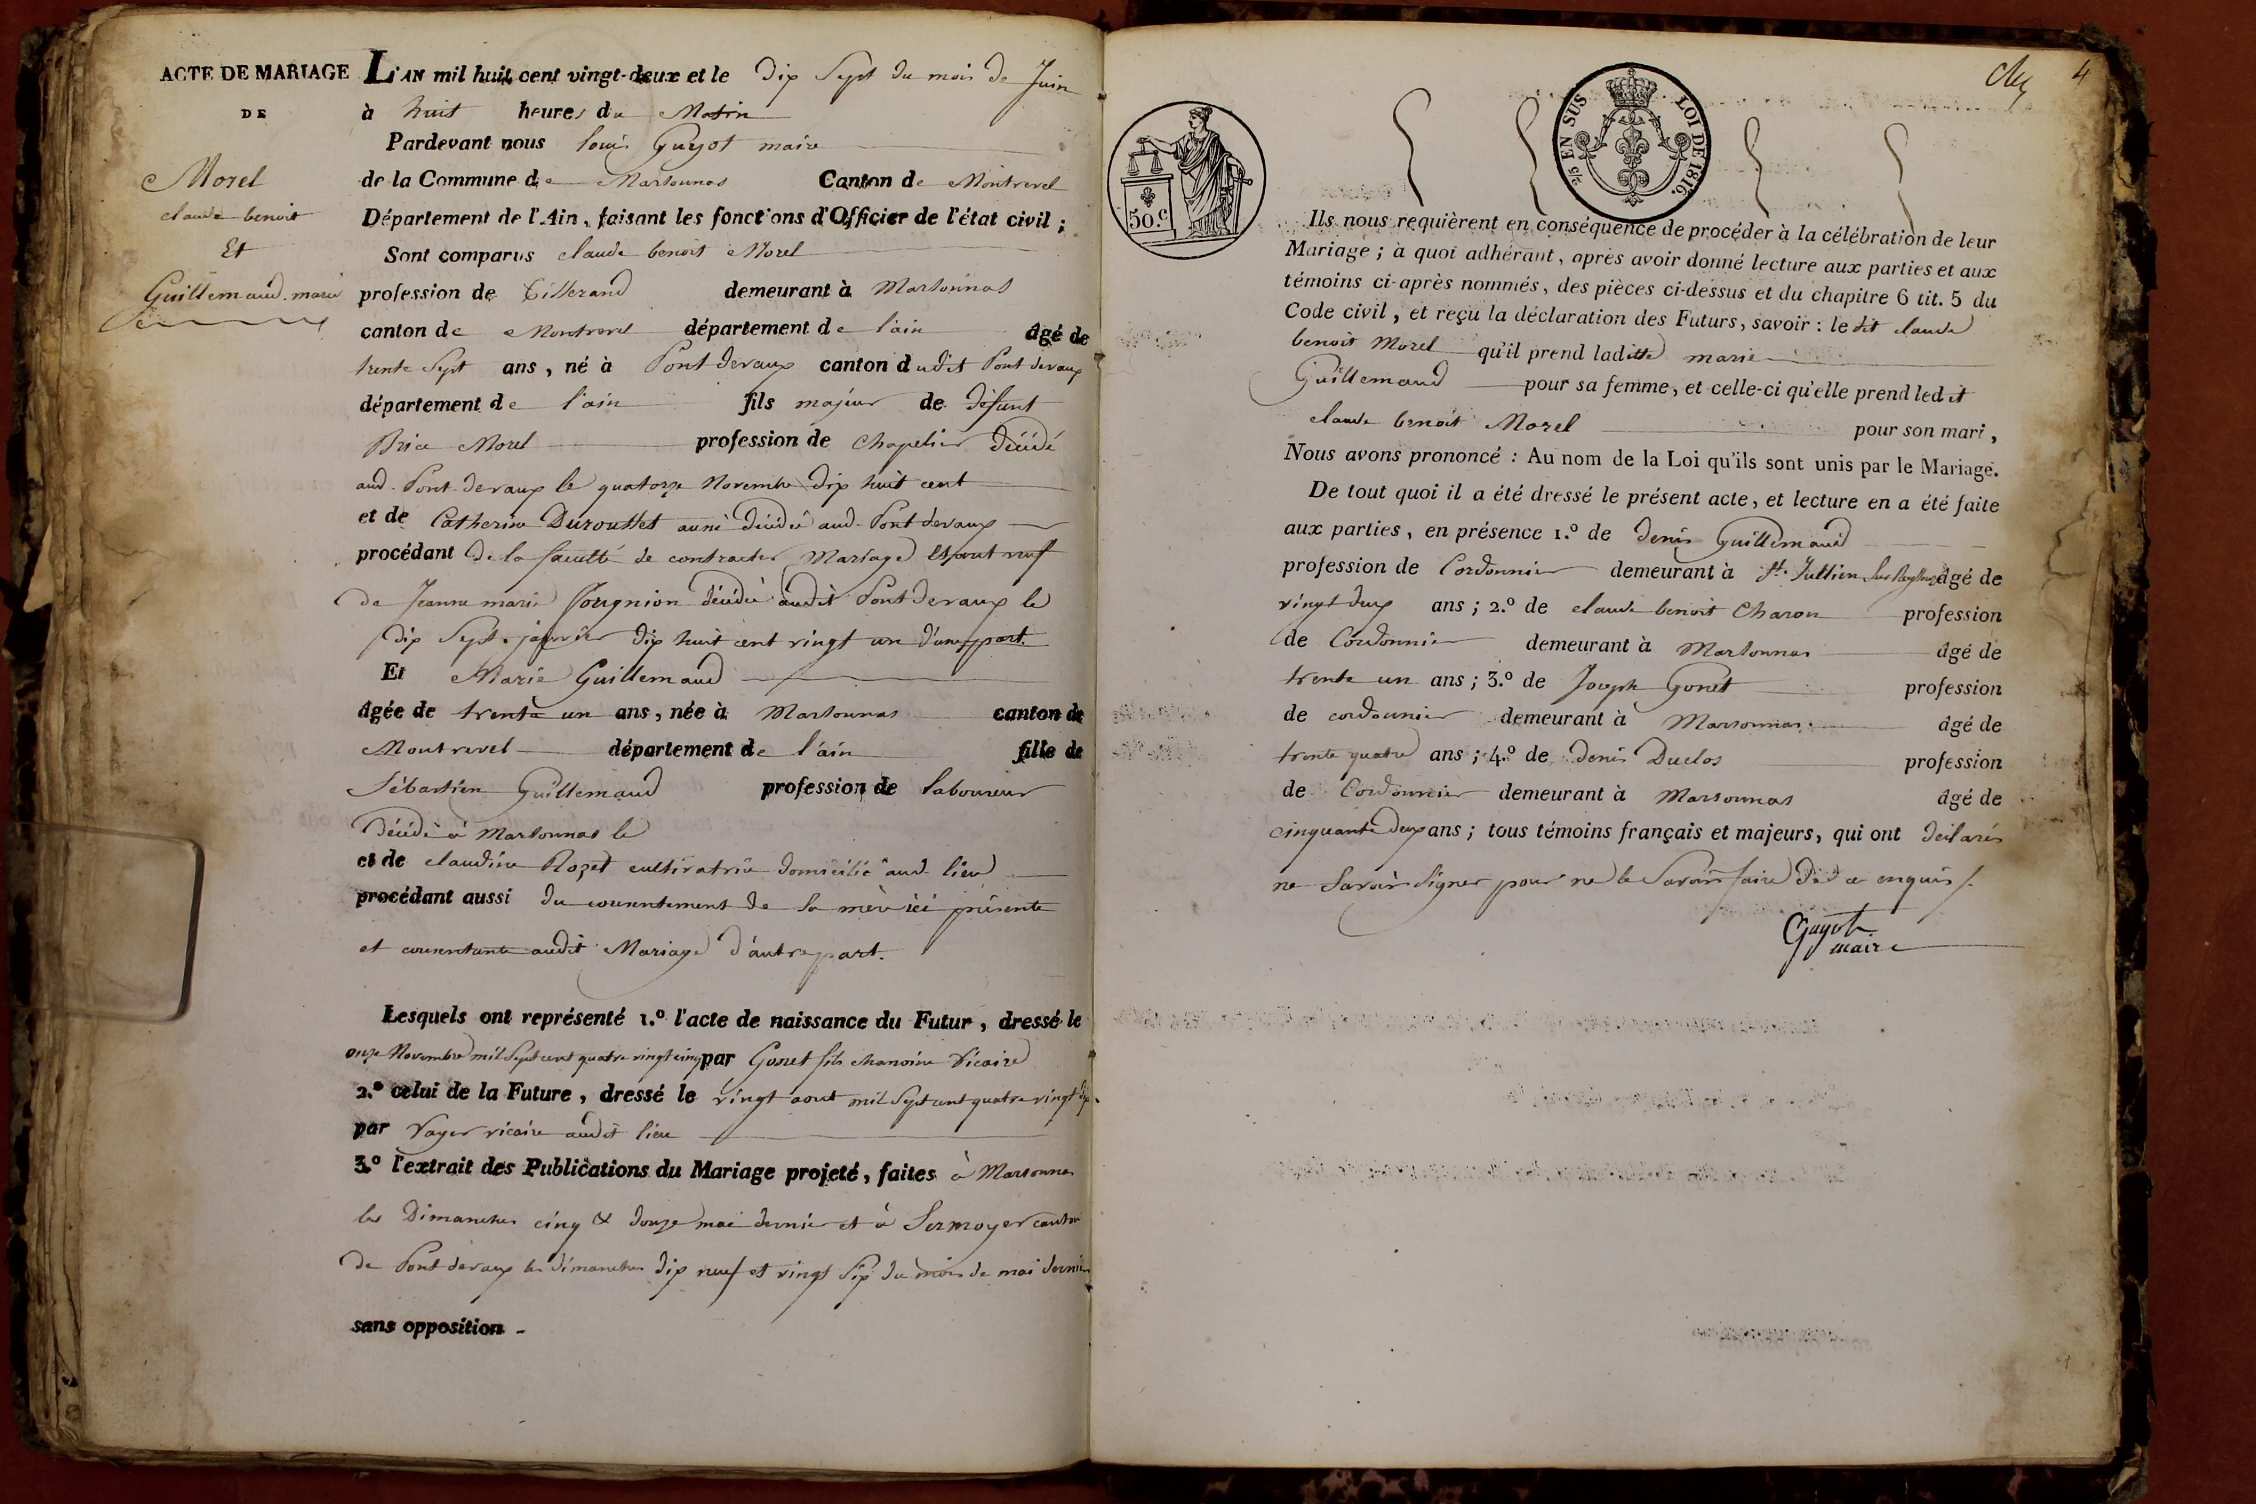 ACTE DE MARIAGE
DE
Morel
claude benoit
Et
Guillemaud marie
L'AN mil huit cent vingt-deux et le dix Sept du mois de Juin
à huit heures du Matin
Pardevant nous louis Guyot maire
de la Commune de Marsonnas Canton de Montrevel
Département de l'Ain, faisant les fonctions d'Officier de l'état civil ;
Sont comparus claude benoit Morel
profession de Tisserand demeurant à Marsonnas
canton de Montrevel département de l'ain âgé de
trente Sept ans, né à Pont devaux canton dudit Pont devaux
département de l'ain fils majeur de défunt
Brice Morel profession de Chapelier décédé
aud. Pont devaux le quatorze Novembre dix huit cent
et de Catherine aussi décédée aud. Pont devaux
procédant de la faculté de contracter Mariage étant veuf
de Jeanne marie décédée audit Pont devaux le
dix Sept janvier dix huit cent vingt un d'une part.
Et Marie Guillemaud
âgée de trente un ans, née à Marsonnas canton de
Montrevel département de l'ain fille de
Sébastien Guillemaud profession de laboureur
décédé à Marsonnas le
et de claudine Rozet cultivatrice domiciliée aud. lieu
procédant aussi du consentement de sa mère ici présente
et consentante audit Mariage d'autre part.
Lesquels ont représenté 1.º l'acte de naissance du Futur, dressé le
onze Novembre mil Sept cent quatre vingt cinq par Gonet fils chanoine Vicaire
2.º celui de la Future, dressé le vingt aout mil Sept cent quatre vingt dix
par Vayer vicaire audit lieu
3.º l'extrait des Publications du Mariage projeté, faites à Marsonnas
les Dimanches cinq & douze mai dernier et à Sermoyer canton
de Pont devaux les dimanches dix neuf et vingt Six du mois de mai dernier
sans opposition -
4
50.C
2/5 EN SUS LOI DE 1816.
Ils nous requièrent en conséquence de procéder à la célébration de leur
Mariage ; à quoi adhérant, après avoir donné lecture aux parties et aux
témoins ci-après nommés, des pièces ci-dessus et du chapitre 6 tit. 5 du
Code civil, et reçu la déclaration des Futurs, savoir : le dit claude
benoit Morel qu'il prend laditte marie
Guillemaud pour sa femme, et celle-ci qu'elle prend ledit
claude benoit Morel pour son mari,
Nous avons prononcé : Au nom de la Loi qu'ils sont unis par le Mariage.
De tout quoi il a été dressé le présent acte, et lecture en a été faite
aux parties, en présence 1.º de denis Guillemaud
profession de Cordonnier demeurant à St. Jullien Sur Reyssouze âgé de
vingt deux ans ; 2.º de claude benoit Charon profession
de Cordonnier demeurant à Marsonnas âgé de
trente un ans ; 3.º de Joseph Gonet profession
de cordonnier demeurant à Marsonnas âgé de
trente quatre ans ; 4.º de denis Duclos profession
de Cordonnier demeurant à Marsonnas âgé de
cinquante deux ans ; tous témoins français et majeurs, qui ont déclarés
ne Savoir Signer pour ne le Savoir faire de ce enquis /.
Guyot
maire